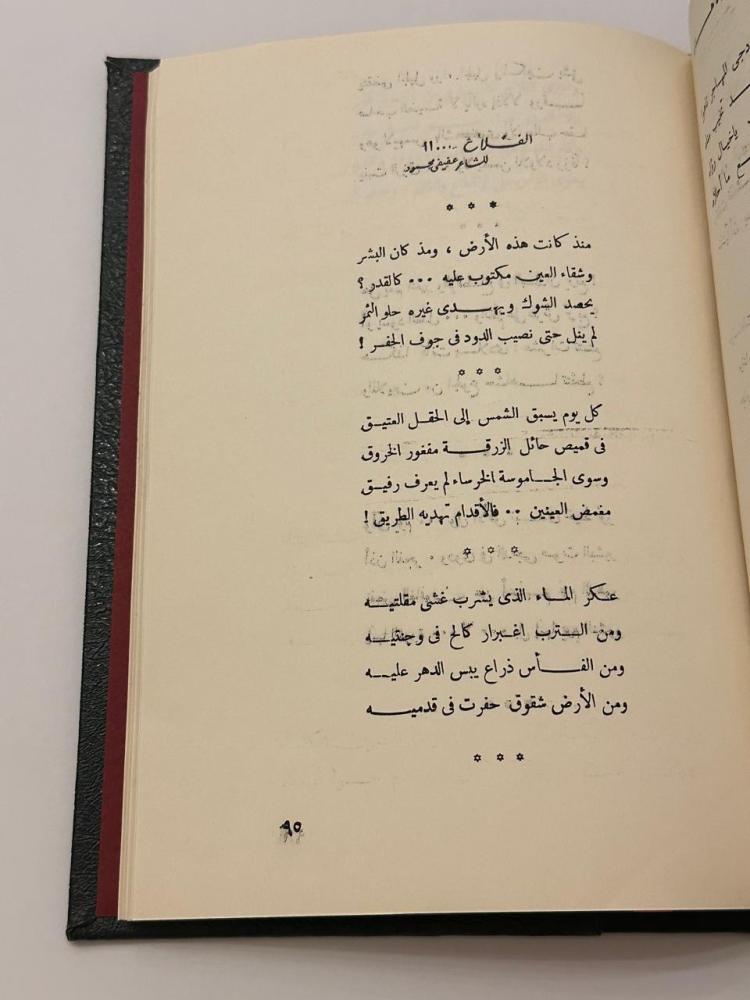 الفلاح ....!!
للشاعر عفيفى محمود
* * *
منذ كانت هذه الأرض ، ومذ كان البشر
وشقاء العين مكتوب عليه ... كالقدر ؟
يحصد الشوك ويهــدى غيره حلو الثمر
لم ينل حتى نصيب الدود فى جوف الحفـر !
* * *
كل يوم يسبق الشمس إلى الحقل العتيق
فى قميص حائل الزرقــة مفغور الخروق
وسوى الجـاموسة الخرساء لم يعرف رفيق
مغمض العينين .. فالأقدام تهديه الطريق !
* * *
عكر المـاء الذى يشرب غشى مقلتيـه
ومن الـترب اغبرار كالح فى وجنتيـه
ومن الفـأس ذراع يبس الدهر عليـه
ومن الأرض شقوق حفرت فى قدميـه
* * *
٩٥